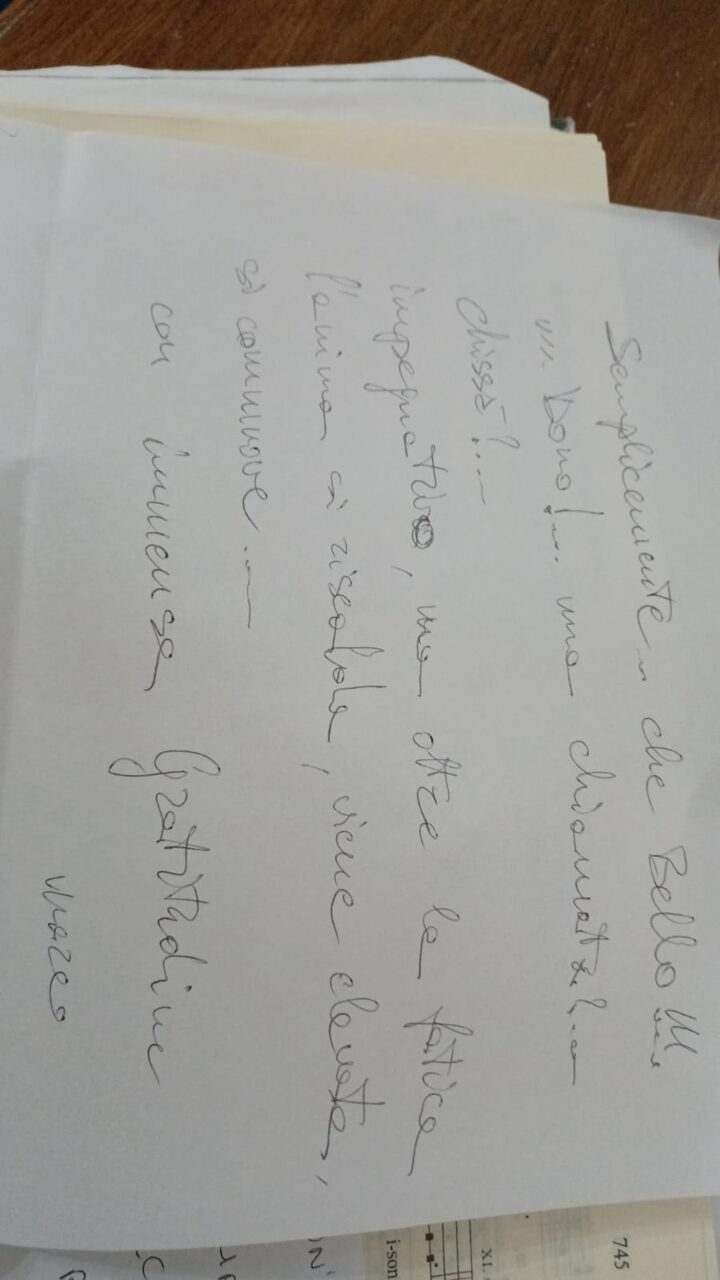 Semplicemente... che Bello!!!...
.... Dono!... una chiamata?...
chissà?...
impegnativo, ma oltre la fatica
l'anima si riscalda, viene elevata,
si commuove...
con immensa Gratitudine
Marco
745
XI.
i-son